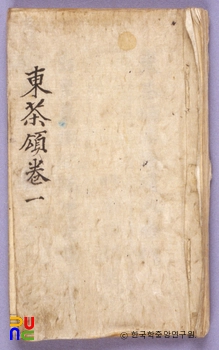 東茶頌卷一
© 한국학중앙연구원